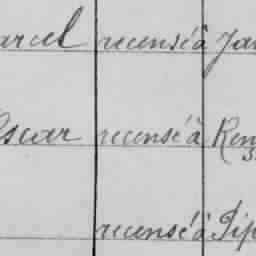 arcel recensé à Ja
Oscar recensé à Ren
recensé à Pip